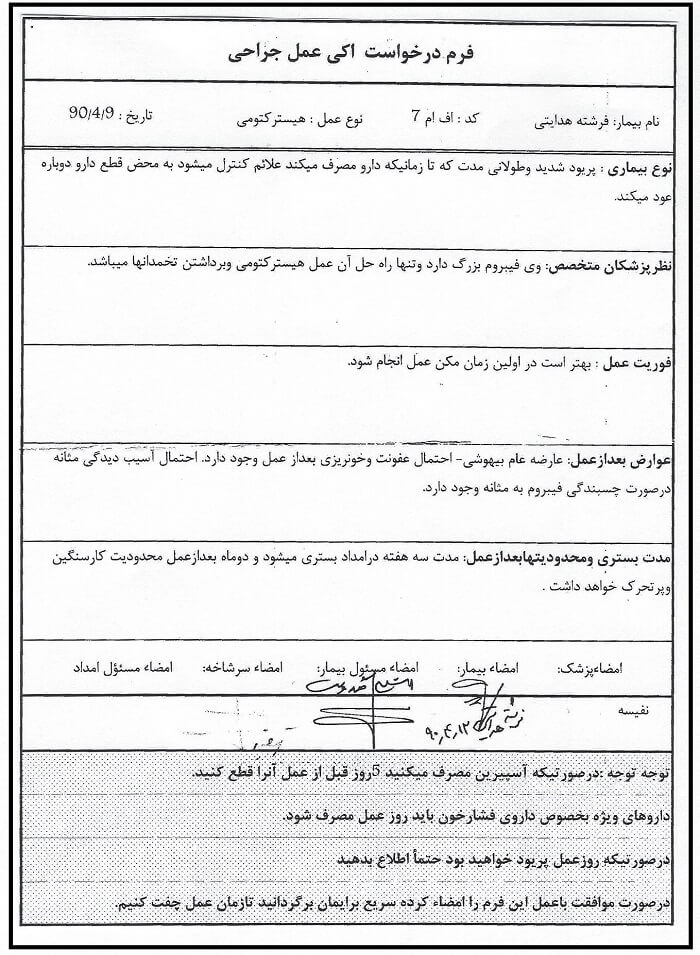 فرم درخواست اکی عمل جراحی
نام بیمار: فرشته هدایتی کد : اف ام 7 نوع عمل : هیسترکتومی تاریخ : 90/4/9
نوع بیماری : پریود شدید وطولانی مدت که تا زمانیکه دارو مصرف میکند علائم کنترل میشود به محض قطع دارو دوباره
عود میکند.
نظرپزشکان متخصص: وی فیبروم بزرگ دارد وتنها راه حل آن عمل هیسترکتومی وبرداشتن تخمدانها میباشد.
فوریت عمل : بهتر است در اولین زمان مکن عمل انجام شود.
عوارض بعدازعمل: عارضه عام بیهوشی- احتمال عفونت وخونریزی بعداز عمل وجود دارد. احتمال آسیب دیدگی مثانه
درصورت چسبندگی فیبروم به مثانه وجود دارد.
مدت بستری ومحدودیتهابعدازعمل: مدت سه هفته درامداد بستری میشود و دوماه بعدازعمل محدودیت کارسنگین
وپرتحرک خواهد داشت .
امضاءپزشک: امضاء بیمار: امضاء مسئول بیمار: امضاء سرشاخه: امضاء مسئؤل امداد
نفیسه
فرشته هدایتی
۹۰٫۴٫۱۲
توجه توجه :درصورتیکه آسپیرین مصرف میکنید 5روز قبل از عمل آنرا قطع کنید.
داروهای ویژه بخصوص داروی فشارخون باید روز عمل مصرف شود.
درصورتیکه روزعمل پریود خواهید بود حتمأ اطلاع بدهید
درصورت موافقت باعمل این فرم را امضاء کرده سریع برایمان برگردانید تازمان عمل چفت کنیم.